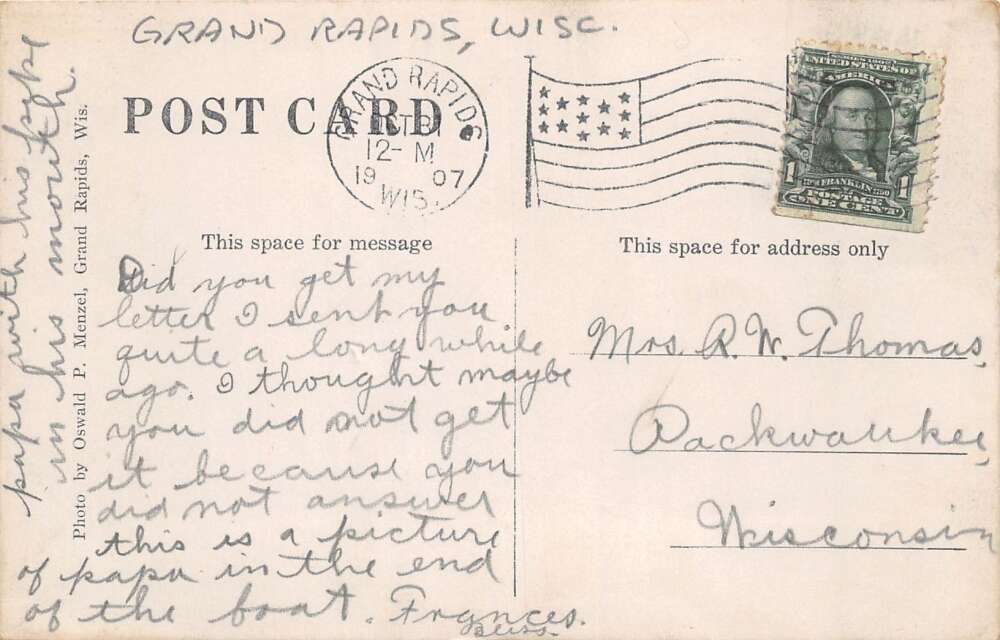 GRAND RAPIDS, WISC.
POST CARD
GRAND RAPIDS
12- M
1907
WIS.
SERIES 1902
UNITED STATES OF
AMERICA
1 FRANKLIN 1
POSTAGE
ONE CENT
This space for message
This space for address only
Did you get my
letter I sent you
quite a long while
ago. I thought maybe
you did not get
it because you
did not answer
this is a picture
of papa in the end
of the boat. Frances.
Bliss.
papa with his pipe
in his mouth.
Photo by Oswald P. Menzel, Grand Rapids, Wis.
Mrs. R. W. Thomas,
Packwaukee,
Wisconsin